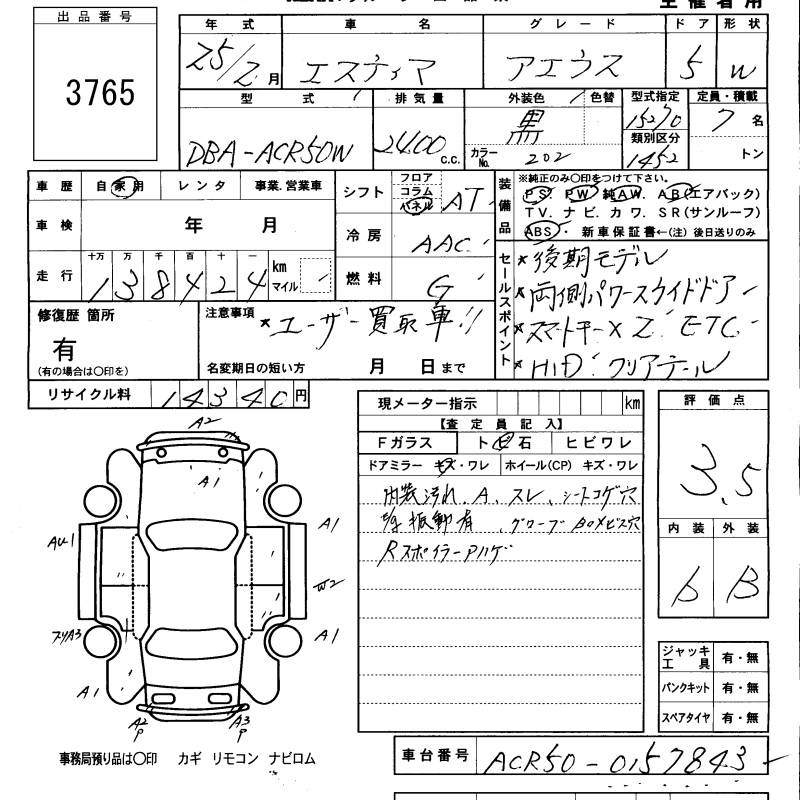 出品番号
3765
年式 車名 グレード ドア 形状
25/2月 エスティマ アエラス 5 W
型式 排気量 外装色 色替 型式指定 定員・積載
DBA-ACR50W 2400 c.c. 黒 15270 7名
カラーNo. 202 類別区分 1452 トン
車歴 自家用 レンタ 事業.営業車
シフト フロア コラム パネル AT
装備品 ※純正のみ○印をつけて下さい。
PS. PW. 純AW. AB(エアバック)
TV. ナビ. カワ. SR(サンルーフ)
ABS. 新車保証書←(注)後日送りのみ
車検 年 月
冷房 AAC
走行 十万 万 千 百 十 一
138424 km マイル
燃料 G
セールスポイント
*後期モデル
*両側パワースライドドアー
*スマートキーX2. ETC.
*HID. クリアテール
修復歴 箇所
有
(有の場合は○印を)
注意事項
*ユーザー買取車!!
名変期日の短い方 月 日まで
リサイクル料 14340円
現メーター指示 km
【査定員記入】
Fガラス トビ石 ヒビワレ
ドアミラー キズ・ワレ ホイール(CP) キズ・ワレ
内装汚れ.A.スレ.シートコゲ穴
振動有 .グローブBOXビス穴
RスポイラーAハゲ
評価点
3.5
内装 外装
b B
A2
A1
A1
AU1
W2
A1
A1
A2
P
A3
P
ジャッキ工具 有・無
パンクキット 有・無
スペアタイヤ 有・無
事務局預り品は○印 カギ リモコン ナビロム
車台番号 ACR50-0157843